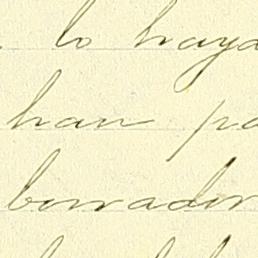 lo haya
han pa
borrador